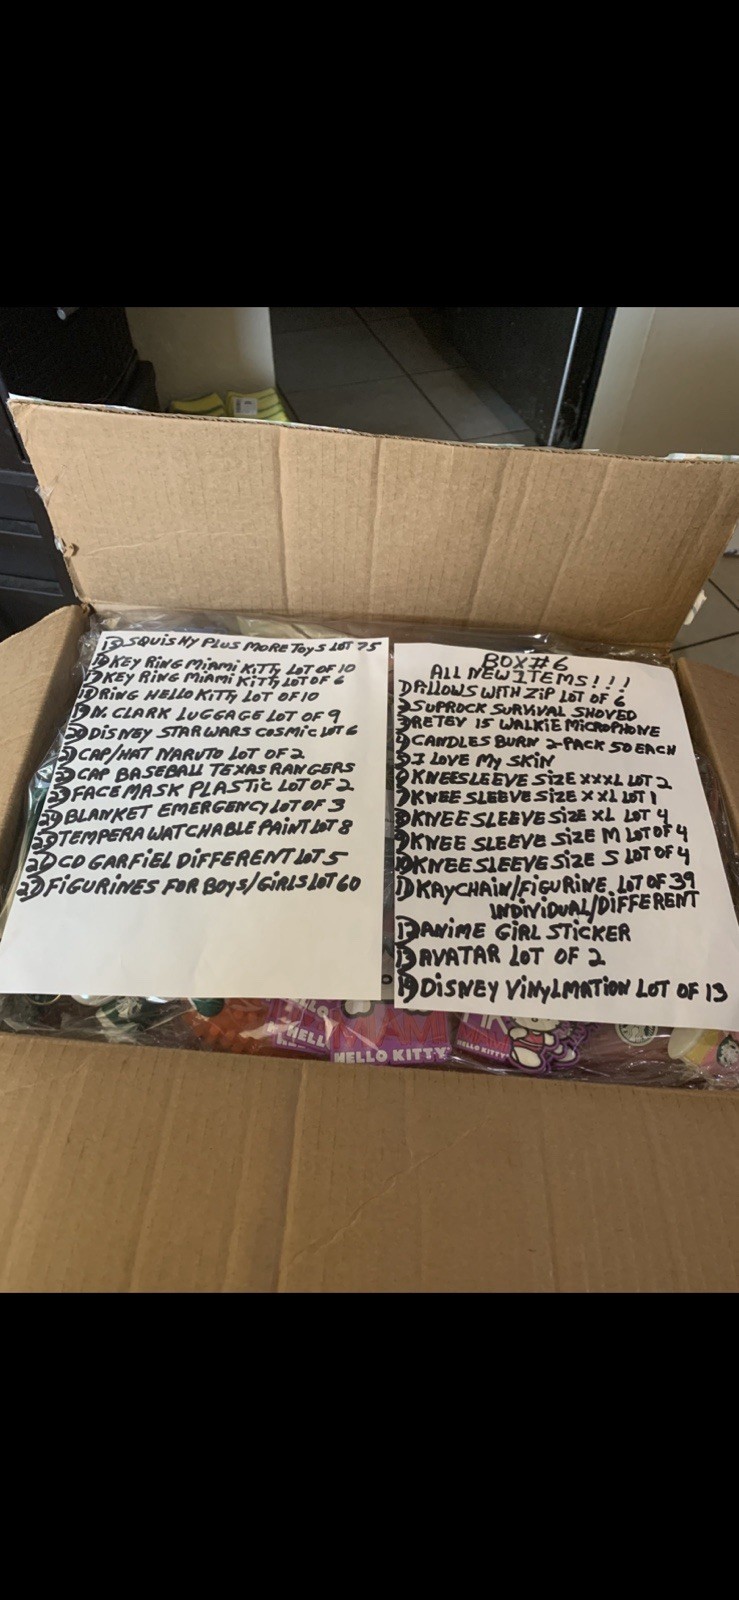 BOX#6
ALL NEW ITEMS!!!
1) PILLOWS WITH ZIP LOT OF 6
2) SUPROCK SURVIVAL SHOVED
3) RETEV 15 WALKIE MICROPHONE
4) CANDLES BURN 2-PACK 50 EACH
5) I LOVE MY SKIN
6) KNEESLEEVE SIZE XXXL LOT 2
7) KNEE SLEEVE SIZE XXL LOT 1
8) KNEE SLEEVE SIZE XL LOT 4
9) KNEE SLEEVE SIZE M LOT OF 4
10) KNEE SLEEVE SIZE S LOT OF 4
11) KAYCHAIN/FIGURINE LOT OF 39
INDIVIDUAL/DIFFERENT
12) ANIME GIRL STICKER
13) AVATAR LOT OF 2
14) DISNEY VINYLMATION LOT OF 13
15) SQUISHY PLUS MORE TOYS LOT 75
16) KEY RING MIAMI KITTY LOT OF 10
17) KEY RING MIAMI KITTY LOT OF 6
18) RING HELLO KITTY LOT OF 10
19) N. CLARK LUGGAGE LOT OF 9
20) DISNEY STAR WARS COSMIC LOT 6
21) CAP/HAT NARUTO LOT OF 2
22) CAP BASEBALL TEXAS RANGERS
23) FACE MASK PLASTIC LOT OF 2
24) BLANKET EMERGENCY LOT OF 3
25) TEMPERA WATCHABLE PAINT LOT 8
26) CD GARFIEL DIFFERENT LOT 5
27) FIGURINES FOR BOYS/GIRLS LOT 60
HELLO
HELLO KITTY
MIAMI
HELLO KITTY